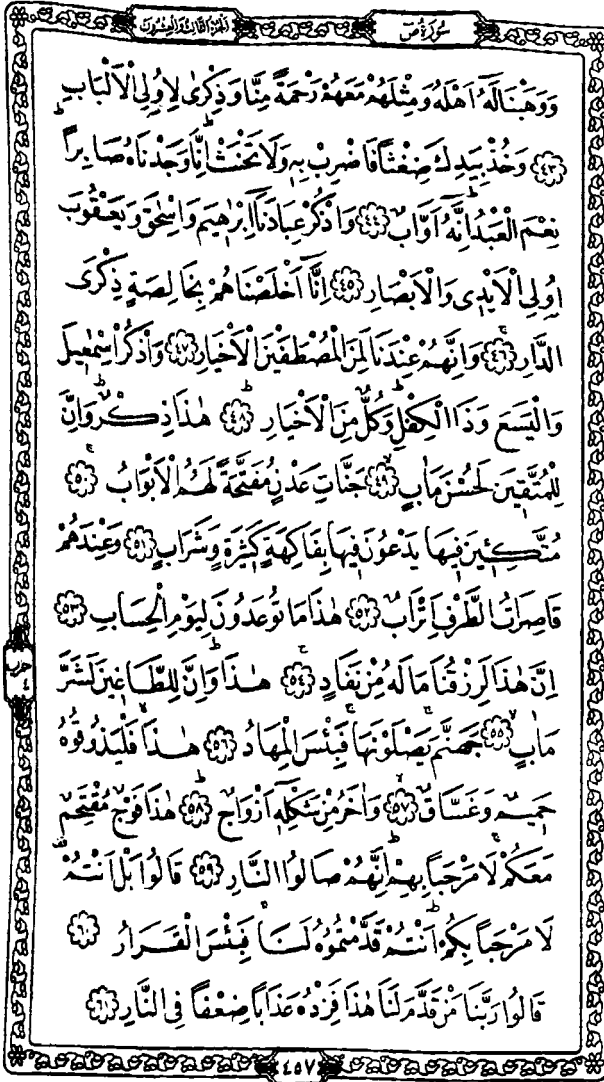 سُورَةُ صٓ
اَلْجُزْءُ الثَّالِثُ وَالْعِشْرُونَ
وَوَهَبْنَا لَهُٓ اَهْلَهُ وَمِثْلَهُمْ مَعَهُمْ رَحْمَةً مِنَّا وَذِكْرٰى لِاُو۬لِي الْاَلْبَابِ
﴿٤٣﴾ وَخُذْ بِيَدِكَ ضِغْثًا فَاضْرِبْ بِه۪ وَلَا تَحْنَثْ اِنَّا وَجَدْنَاهُ صَابِرًا
نِعْمَ الْعَبْدُ اِنَّهُٓ اَوَّابٌ ﴿٤٤﴾ وَاذْكُرْ عِبَادَنَٓا اِبْرٰه۪يمَ وَاِسْحٰقَ وَيَعْقُوبَ
اُو۬لِي الْاَيْد۪ي وَالْاَبْصَارِ ﴿٤٥﴾ اِنَّٓا اَخْلَصْنَاهُمْ بِخَالِصَةٍ ذِكْرَى
الدَّارِ ﴿٤٦﴾ وَاِنَّهُمْ عِنْدَنَا لَمِنَ الْمُصْطَفَيْنَ الْاَخْيَارِ ﴿٤٧﴾ وَاذْكُرْ اِسْمٰع۪يلَ
وَالْيَسَعَ وَذَا الْكِفْلِ وَكُلٌّ مِنَ الْاَخْيَارِ ﴿٤٨﴾ هٰذَا ذِكْرٌ وَاِنَّ
لِلْمُتَّق۪ينَ لَحُسْنَ مَاٰبٍ ﴿٤٩﴾ جَنَّاتِ عَدْنٍ مُفَتَّحَةً لَهُمُ الْاَبْوَابُ ﴿٥٠﴾
مُتَّكِـ۪ٔينَ ف۪يهَا يَدْعُونَ ف۪يهَا بِفَاكِهَةٍ كَث۪يرَةٍ وَشَرَابٍ ﴿٥١﴾ وَعِنْدَهُمْ
قَاصِرَاتُ الطَّرْفِ اَتْرَابٌ ﴿٥٢﴾ هٰذَا مَا تُوعَدُونَ لِيَوْمِ الْحِسَابِ ﴿٥٣﴾
اِنَّ هٰذَا لَرِزْقُنَا مَا لَهُ مِنْ نَفَادٍ ﴿٥٤﴾ هٰذَا وَاِنَّ لِلطَّاغ۪ينَ لَشَرَّ
مَاٰبٍ ﴿٥٥﴾ جَهَنَّمَ يَصْلَوْنَهَا فَبِئْسَ الْمِهَادُ ﴿٥٦﴾ هٰذَا فَلْيَذُوقُوهُ
حَم۪يمٌ وَغَسَّاقٌ ﴿٥٧﴾ وَاٰخَرُ مِنْ شَكْلِه۪ٓ اَزْوَاجٌ ﴿٥٨﴾ هٰذَا فَوْجٌ مُقْتَحِمٌ
مَعَكُمْ لَا مَرْحَبًا بِهِمْ اِنَّهُمْ صَالُوا النَّارِ ﴿٥٩﴾ قَالُوا بَلْ اَنْتُمْ
لَا مَرْحَبًا بِكُمْ اَنْتُمْ قَدَّمْتُمُوهُ لَنَا فَبِئْسَ الْقَرَارُ ﴿٦٠﴾
قَالُوا رَبَّنَا مَنْ قَدَّمَ لَنَا هٰذَا فَزِدْهُ عَذَابًا ضِعْفًا فِي النَّارِ ﴿٦١﴾
حزب
٤
٤٥٧